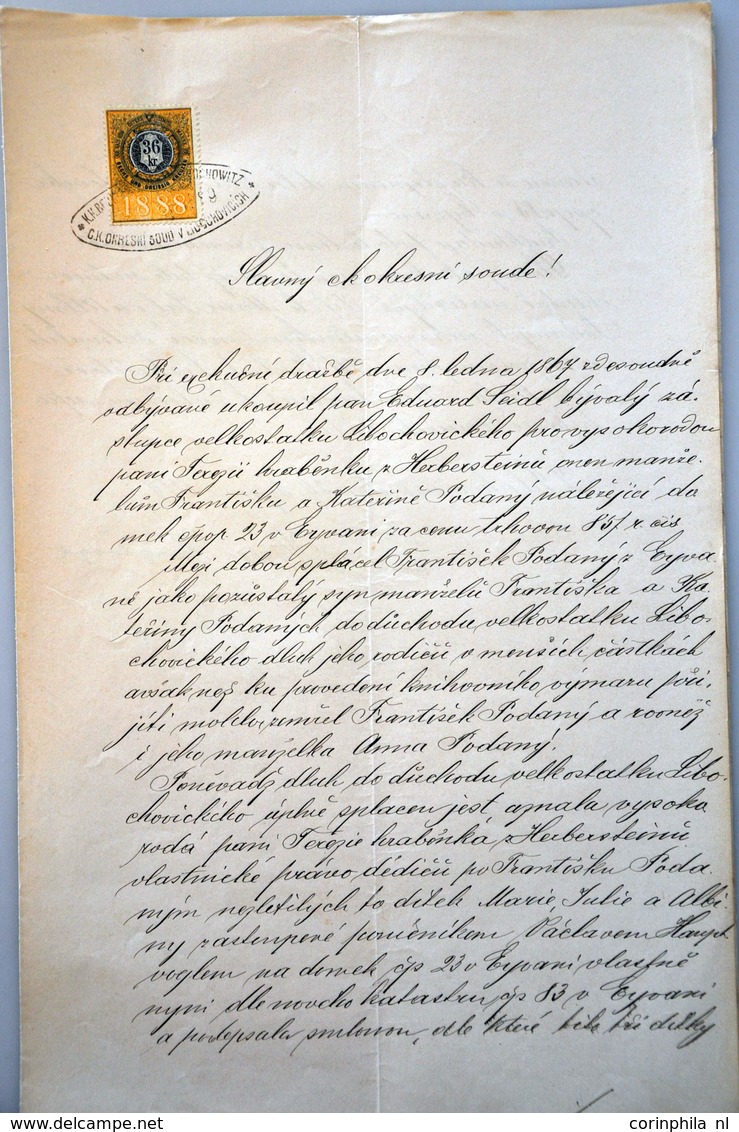 36
kr.
1888
C.K. OKRESNI SOUD V LIBOCHOVICICH
Slavný ck okresní soude!
Při exekuční dražbě dne 8. ledna 1867 zdesoudně
odbývané ukoupil pan Eduard Seidl bývalý zá-
stupce velkostatku Libochovického pro vysokorodou
paní Terezii hraběnku z Herbersteinů onen manže-
lům Františku a Kateřině Podaný náležející do
mek čpop. 23 v Evani za cenu trhovou 857 r. čís
Mezi dobou splácel František Podaný z Evva
ně jako pozůstalý syn manželů Františka a Ka
teřiny Podaných do důchodu velkostatku Libo-
chovického dluh jeho rodičů v menších částkách
avšak než ku provedení knihovního výmazu při,
jíti mohlo, zemřel František Podaný a rovněž
i jeho manželka Anna Podaný.
Poněvadž dluh do důchodu velkostatku Libo-
chovického úplně splacen jest, uznala vysoko
rodá paní Terezie hraběnka z Herbersteinů
vlastnické právo dědiců po Františku Poda
ným nezletilých to dítek Marie, Julie a Albi-
ny zastoupené poručníkem Václavem
voglem na domek čp 23 v Evvani vlastně
nyní dle nového katastru čp 83 v Evvani
a podepsala smlouvu, dle které tito tři dítky
corinphila nl